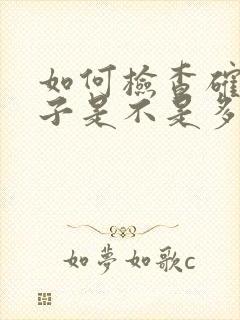 如何檢查確
子是不是多
如夢如歌c